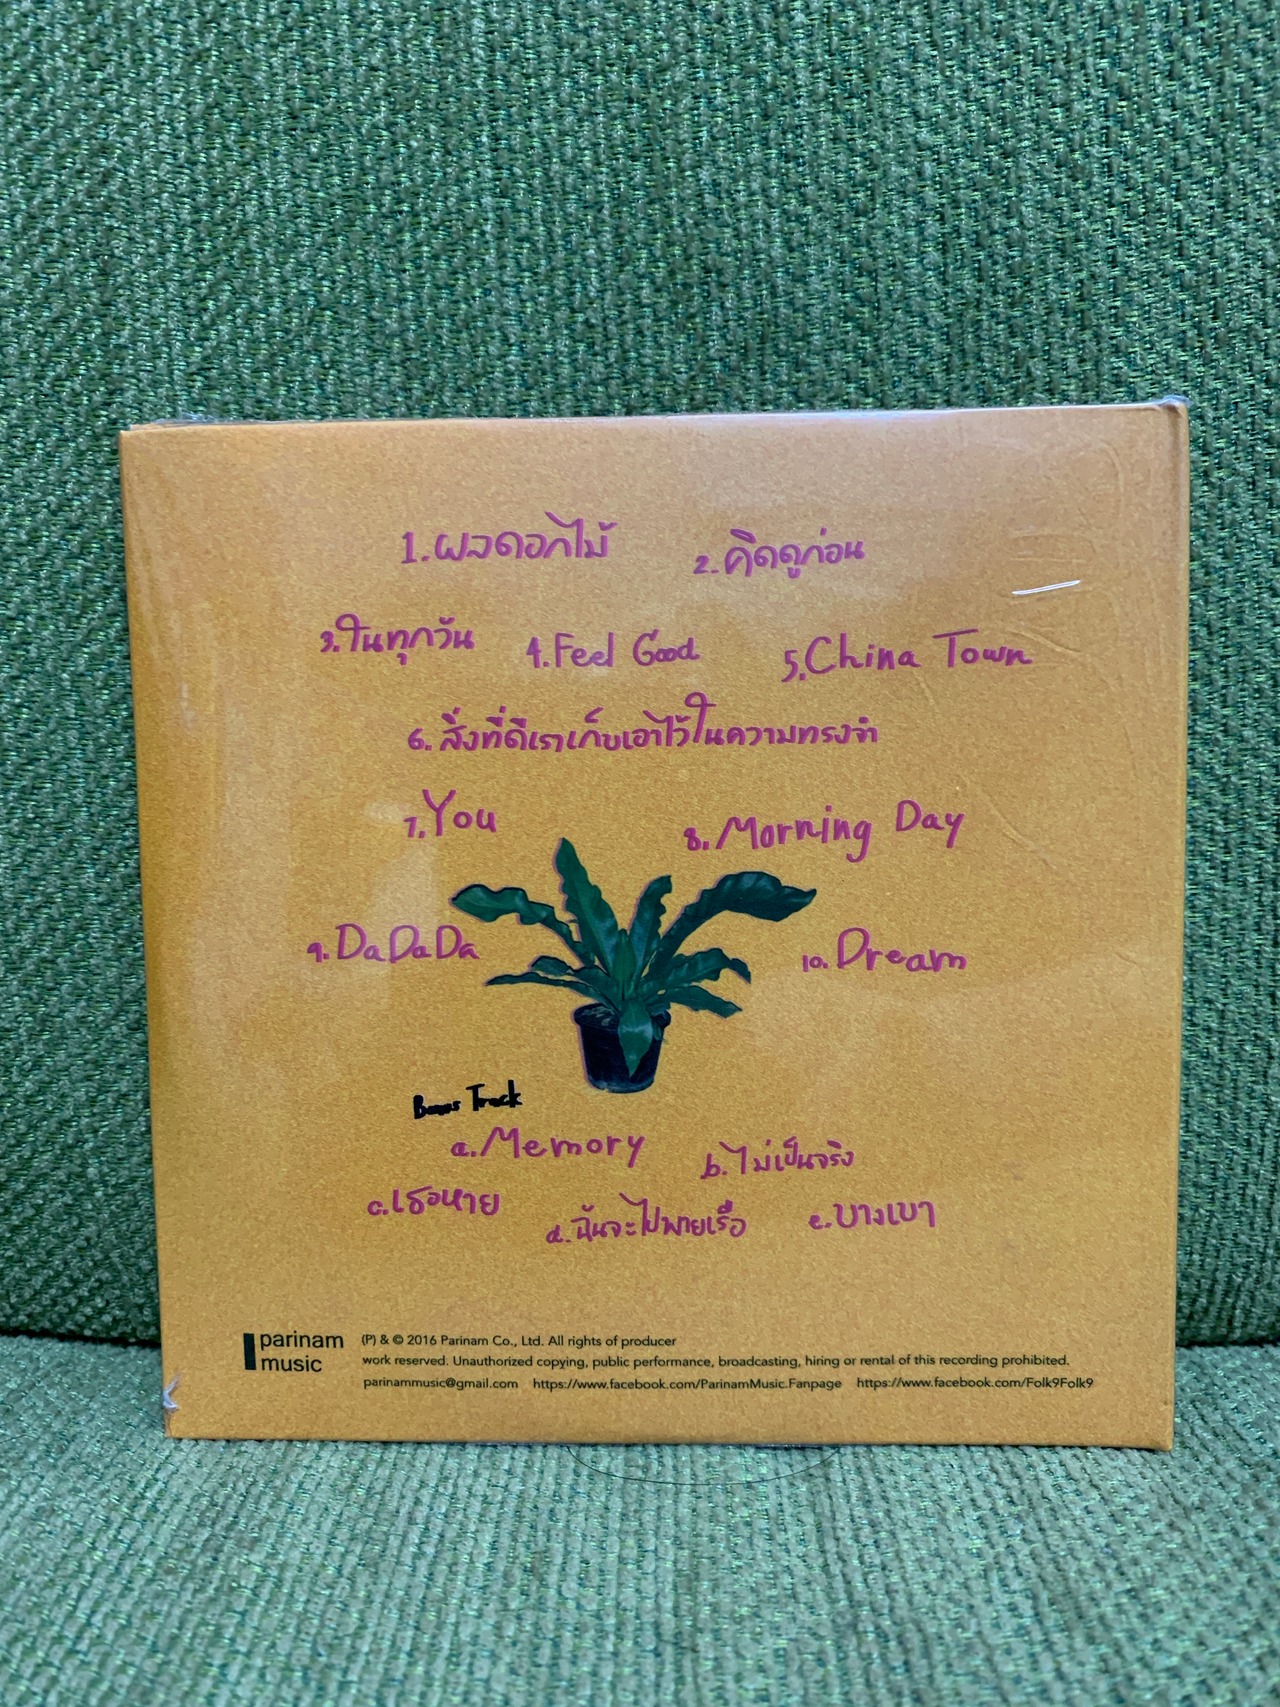 1.ผลดอกไม้ 2.คิดดูก่อน
3.ในทุกวัน 4.Feel Good 5.China Town
6. สิ่งที่ดีเราเก็บเอาไว้ในความทรงจำ
7.You 8.Morning Day
9.DaDaDa 10.Dream
Bonus Track
a.Memory b.ไม่เป็นจริง
c.เธอหาย d.ฉันจะไปพายเรือ e.บางเบา
parinam music
(P) & © 2016 Parinam Co., Ltd. All rights of producer
work reserved. Unauthorized copying, public performance, broadcasting, hiring or rental of this recording prohibited.
parinammusic@gmail.com https://www.facebook.com/ParinamMusic.Fanpage https://www.facebook.com/Folk9Folk9